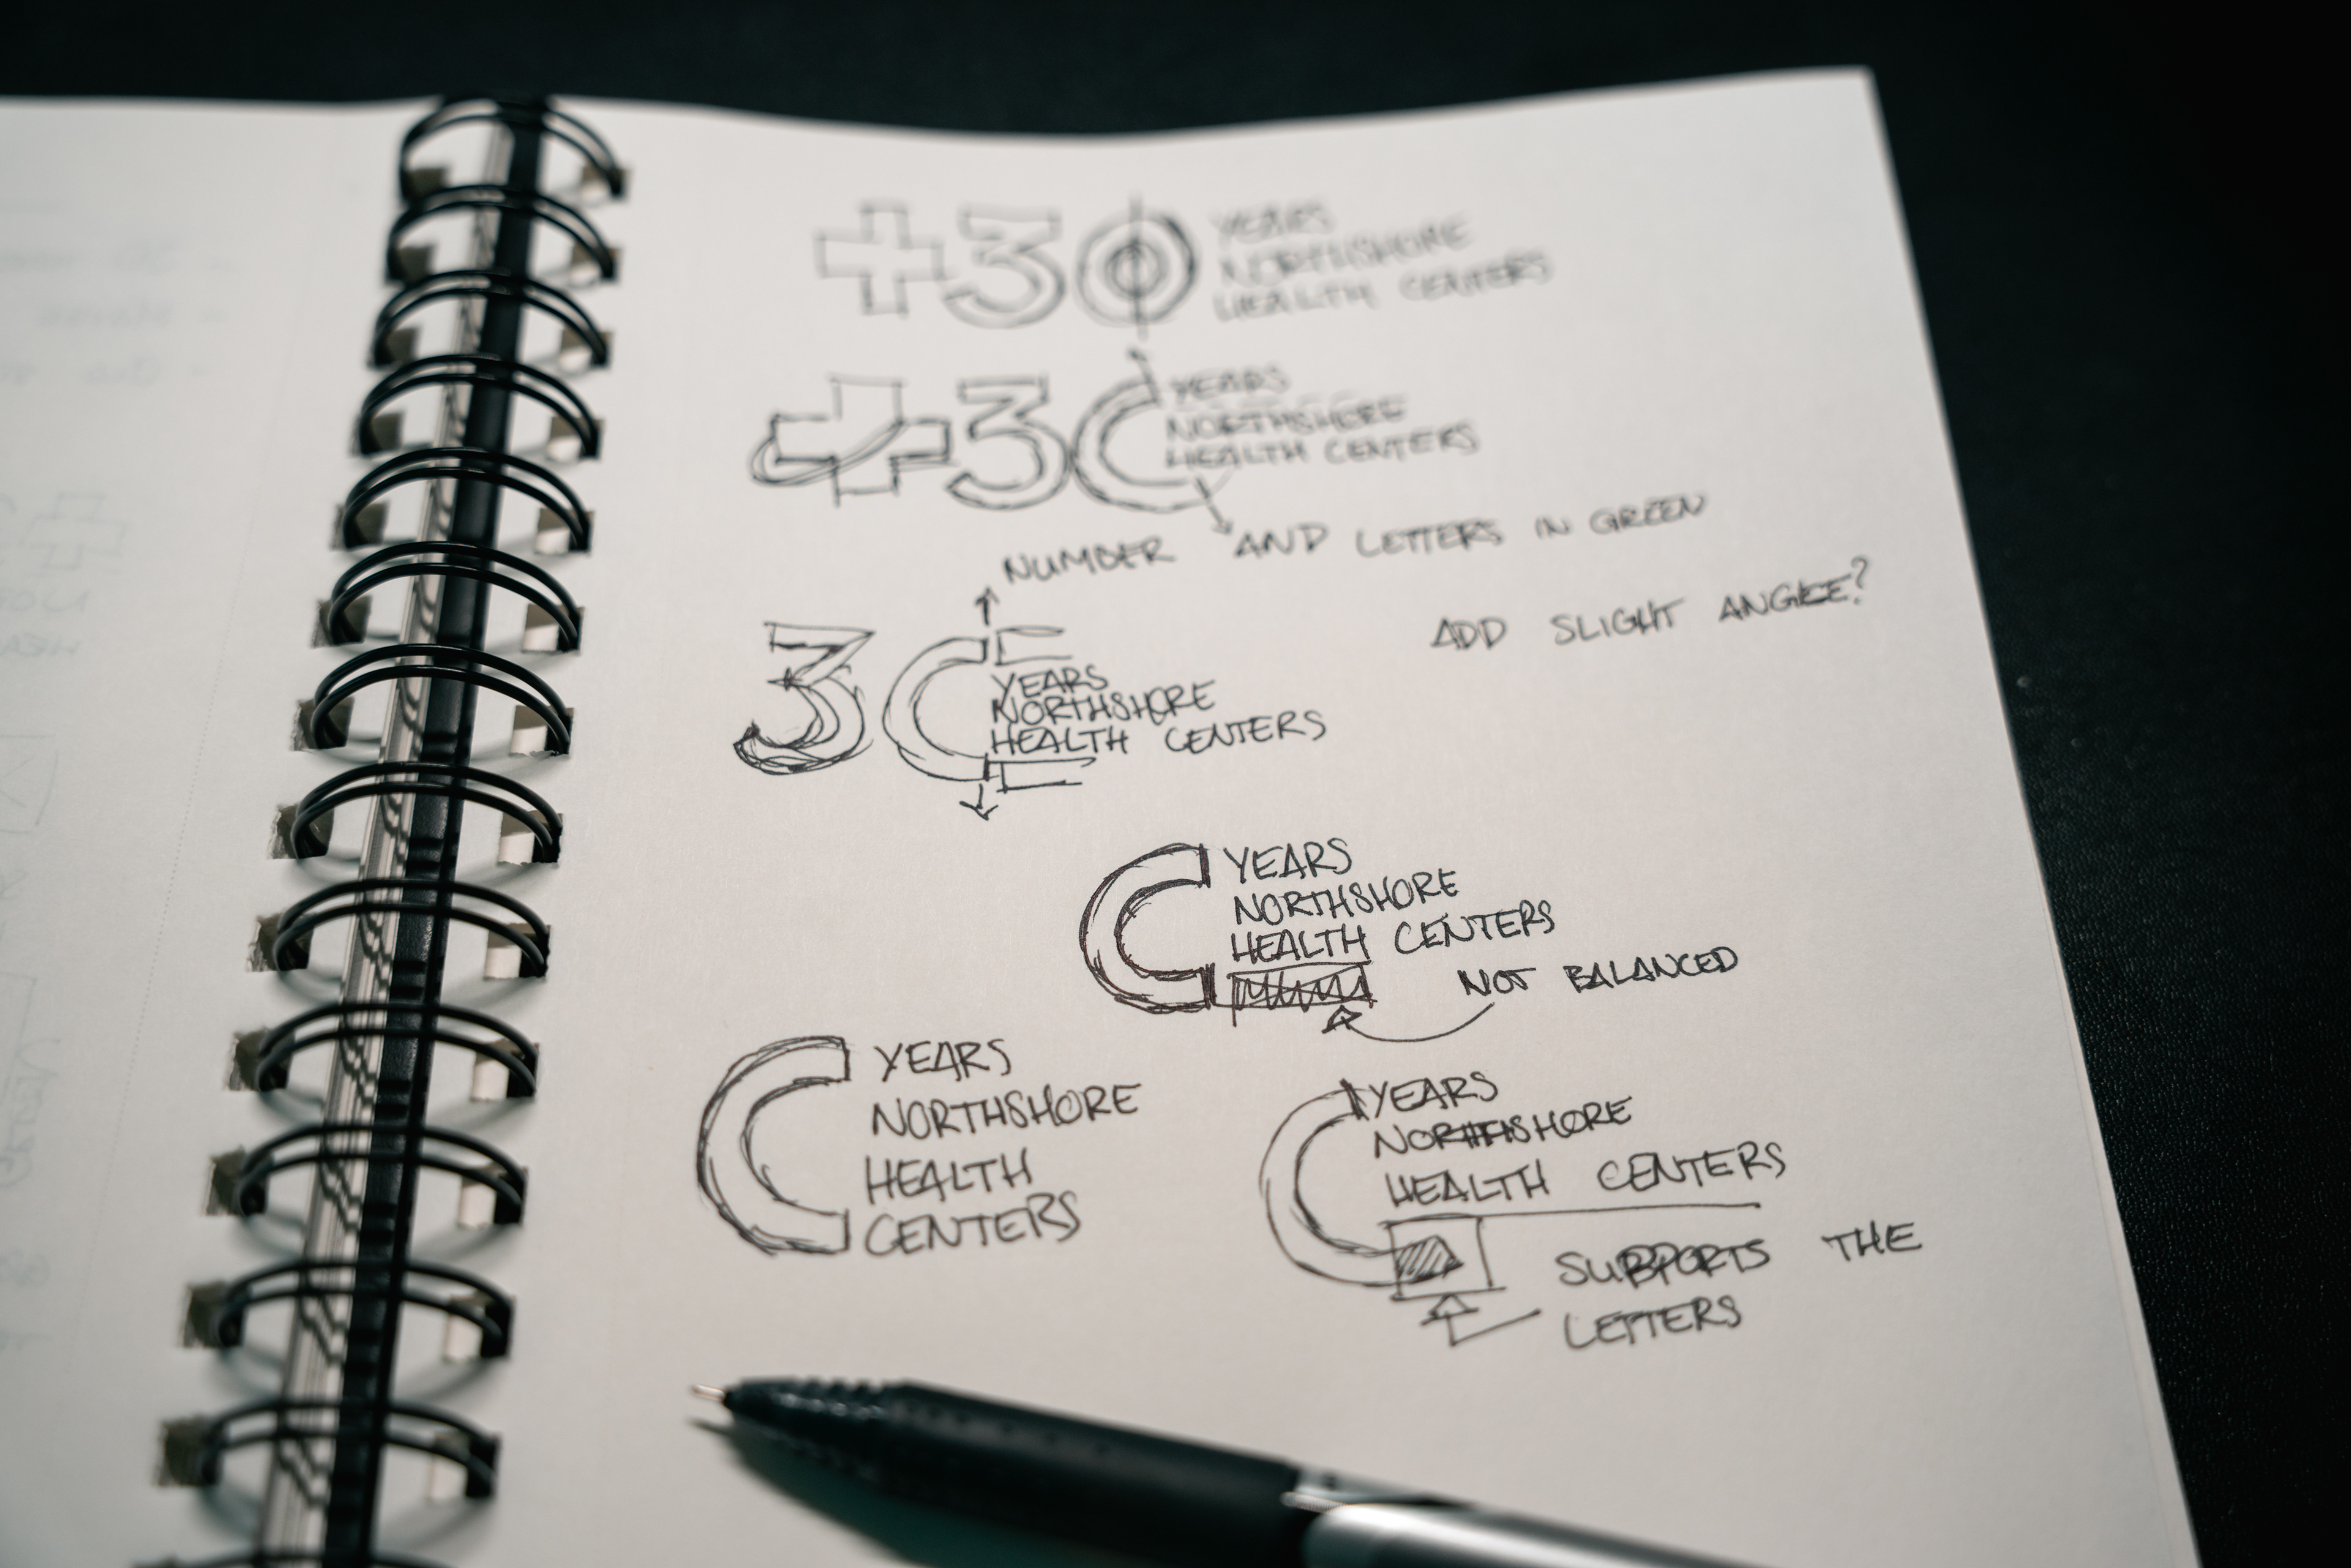 +30 YEARS
NORTHSHORE
HEALTH CENTERS
+3C YEARS
NORTHSHORE
HEALTH CENTERS
NUMBER AND LETTERS IN GREEN
ADD SLIGHT ANGLE?
3C YEARS
NORTHSHORE
HEALTH CENTERS
C YEARS
NORTHSHORE
HEALTH CENTERS
NOT BALANCED
C YEARS
NORTHSHORE
HEALTH
CENTERS
C YEARS
NORTHSHORE
HEALTH CENTERS
SUPPORTS THE
LETTERS